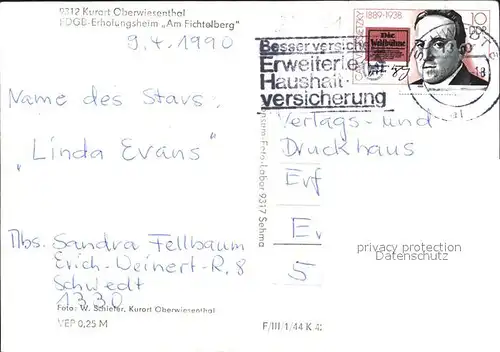 9312 Kurort Oberwiesenthal
FDGB-Erholungsheim „Am Fichtelberg"
9.4.1990
Name des Stars:
„Linda Evans"
Abs. Sandra Fellbaum
Erich-Weinert-R. 8
Schwedt
1330
Foto: W. Schiefer, Kurort Oberwiesenthal
VEP 0,25 M
F/III/1/44 K 4
Foto-Labor 9317 Sehma
Besser versiche
Erweiterte
Haushalt-
versicherung
1889-1938
Die
Weltbühne
10
DDR
Verlags- und
Druckhaus
Erf
E
5
privacy protection
Datenschutz